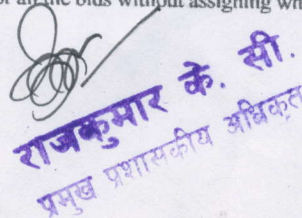 all the bids without assigning
राजकुमार के. सी.
प्रमुख प्रशासकीय अधिकृत